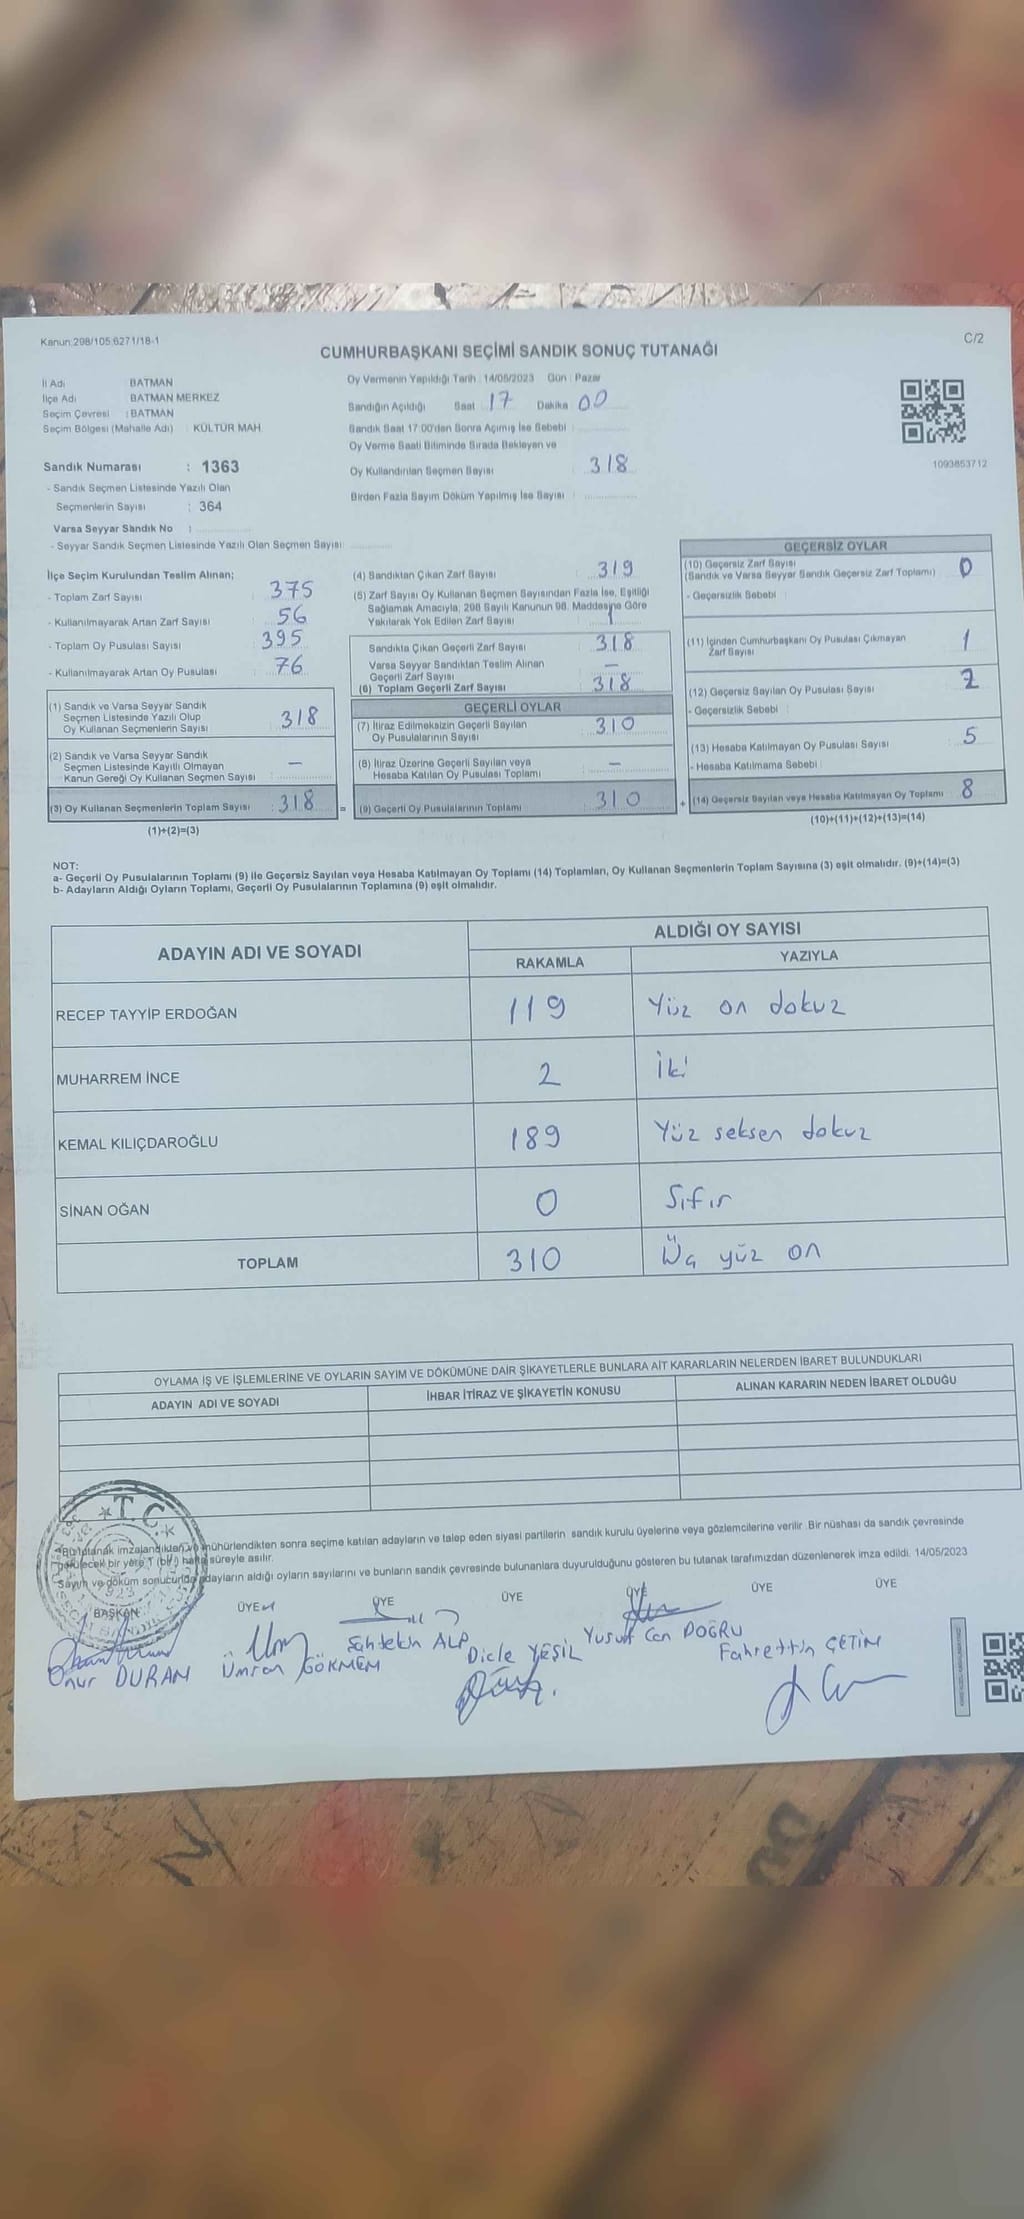 Kanun:298/105;6271/18-1
C/2
CUMHURBAŞKANI SEÇİMİ SANDIK SONUÇ TUTANAĞI
İl Adı BATMAN
İlçe Adı BATMAN MERKEZ
Seçim Çevresi : BATMAN
Seçim Bölgesi (Mahalle Adı) : KÜLTÜR MAH.
Sandık Numarası : 1363
- Sandık Seçmen Listesinde Yazılı Olan
Seçmenlerin Sayısı : 364
Varsa Seyyar Sandık No :
- Seyyar Sandık Seçmen Listesinde Yazılı Olan Seçmen Sayısı:
Oy Vermenin Yapıldığı Tarih : 14/05/2023 Gün : Pazar
Sandığın Açıldığı Saat 17 Dakika 00
Sandık Saat 17:00'den Sonra Açılmış İse Sebebi :
Oy Verme Saati Bitiminde Sırada Bekleyen ve
Oy Kullandırılan Seçmen Sayısı : 318
Birden Fazla Sayım Döküm Yapılmış İse Sayısı :
1093853712
İlçe Seçim Kurulundan Teslim Alınan;
- Toplam Zarf Sayısı : 375
- Kullanılmayarak Artan Zarf Sayısı : 56
- Toplam Oy Pusulası Sayısı : 395
- Kullanılmayarak Artan Oy Pusulası : 76
(1) Sandık ve Varsa Seyyar Sandık
Seçmen Listesinde Yazılı Olup
Oy Kullanan Seçmenlerin Sayısı : 318
(2) Sandık ve Varsa Seyyar Sandık
Seçmen Listesinde Kayıtlı Olmayan
Kanun Gereği Oy Kullanan Seçmen Sayısı : —
(3) Oy Kullanan Seçmenlerin Toplam Sayısı : 318 =
(1)+(2)=(3)
(4) Sandıktan Çıkan Zarf Sayısı : 319
(5) Zarf Sayısı Oy Kullanan Seçmen Sayısından Fazla İse, Eşitliği
Sağlamak Amacıyla, 298 Sayılı Kanunun 98. Maddesine Göre
Yakılarak Yok Edilen Zarf Sayısı : 1
Sandıkta Çıkan Geçerli Zarf Sayısı : 318
Varsa Seyyar Sandıktan Teslim Alınan
Geçerli Zarf Sayısı : —
(6) Toplam Geçerli Zarf Sayısı : 318
GEÇERLİ OYLAR
(7) İtiraz Edilmeksizin Geçerli Sayılan
Oy Pusulalarının Sayısı : 310
(8) İtiraz Üzerine Geçerli Sayılan veya
Hesaba Katılan Oy Pusulası Toplamı : —
(9) Geçerli Oy Pusulalarının Toplamı : 310 +
GEÇERSİZ OYLAR
(10) Geçersiz Zarf Sayısı
(Sandık ve Varsa Seyyar Sandık Geçersiz Zarf Toplamı) : 0
- Geçersizlik Sebebi :
(11) İçinden Cumhurbaşkanı Oy Pusulası Çıkmayan
Zarf Sayısı : 1
(12) Geçersiz Sayılan Oy Pusulası Sayısı : 2
- Geçersizlik Sebebi :
(13) Hesaba Katılmayan Oy Pusulası Sayısı : 5
- Hesaba Katılmama Sebebi :
(14) Geçersiz Sayılan veya Hesaba Katılmayan Oy Toplamı : 8
(10)+(11)+(12)+(13)=(14)
NOT:
a- Geçerli Oy Pusulalarının Toplamı (9) ile Geçersiz Sayılan veya Hesaba Katılmayan Oy Toplamı (14) Toplamları, Oy Kullanan Seçmenlerin Toplam Sayısına (3) eşit olmalıdır. (9)+(14)=(3)
b- Adayların Aldığı Oyların Toplamı, Geçerli Oy Pusulalarının Toplamına (9) eşit olmalıdır.
ADAYIN ADI VE SOYADI
ALDIĞI OY SAYISI
RAKAMLA YAZIYLA
RECEP TAYYİP ERDOĞAN 119 Yüz on dokuz
MUHARREM İNCE 2 İki
KEMAL KILIÇDAROĞLU 189 Yüz seksen dokuz
SİNAN OĞAN 0 Sıfır
TOPLAM 310 Üç yüz on
OYLAMA İŞ VE İŞLEMLERİNE VE OYLARIN SAYIM VE DÖKÜMÜNE DAİR ŞİKAYETLERLE BUNLARA AİT KARARLARIN NELERDEN İBARET BULUNDUKLARI
ADAYIN ADI VE SOYADI İHBAR İTİRAZ VE ŞİKAYETİN KONUSU ALINAN KARARIN NEDEN İBARET OLDUĞU
T.C.
Bu tutanak imzalandıktan ve mühürlendikten sonra seçime katılan adayların ve talep eden siyasi partilerin sandık kurulu üyelerine ve gözlemcilerine verilir. Bir nüshası da sandık çevresinde
görülecek bir yere 1 (bir) hafta süreyle asılır.
Sayım ve döküm sonucunda adayların aldığı oyların sayılarını ve bunların sandık çevresinde bulunanlara duyurulduğunu gösteren bu tutanak tarafımızdan düzenlenerek imza edildi. 14/05/2023
BAŞKAN ÜYE ÜYE ÜYE ÜYE ÜYE ÜYE
Onur DURAN Ümran GÖKMEN Şahtekin ALP Dicle YEŞİL Yusuf Can DOĞRU Fahrettin ÇETİN